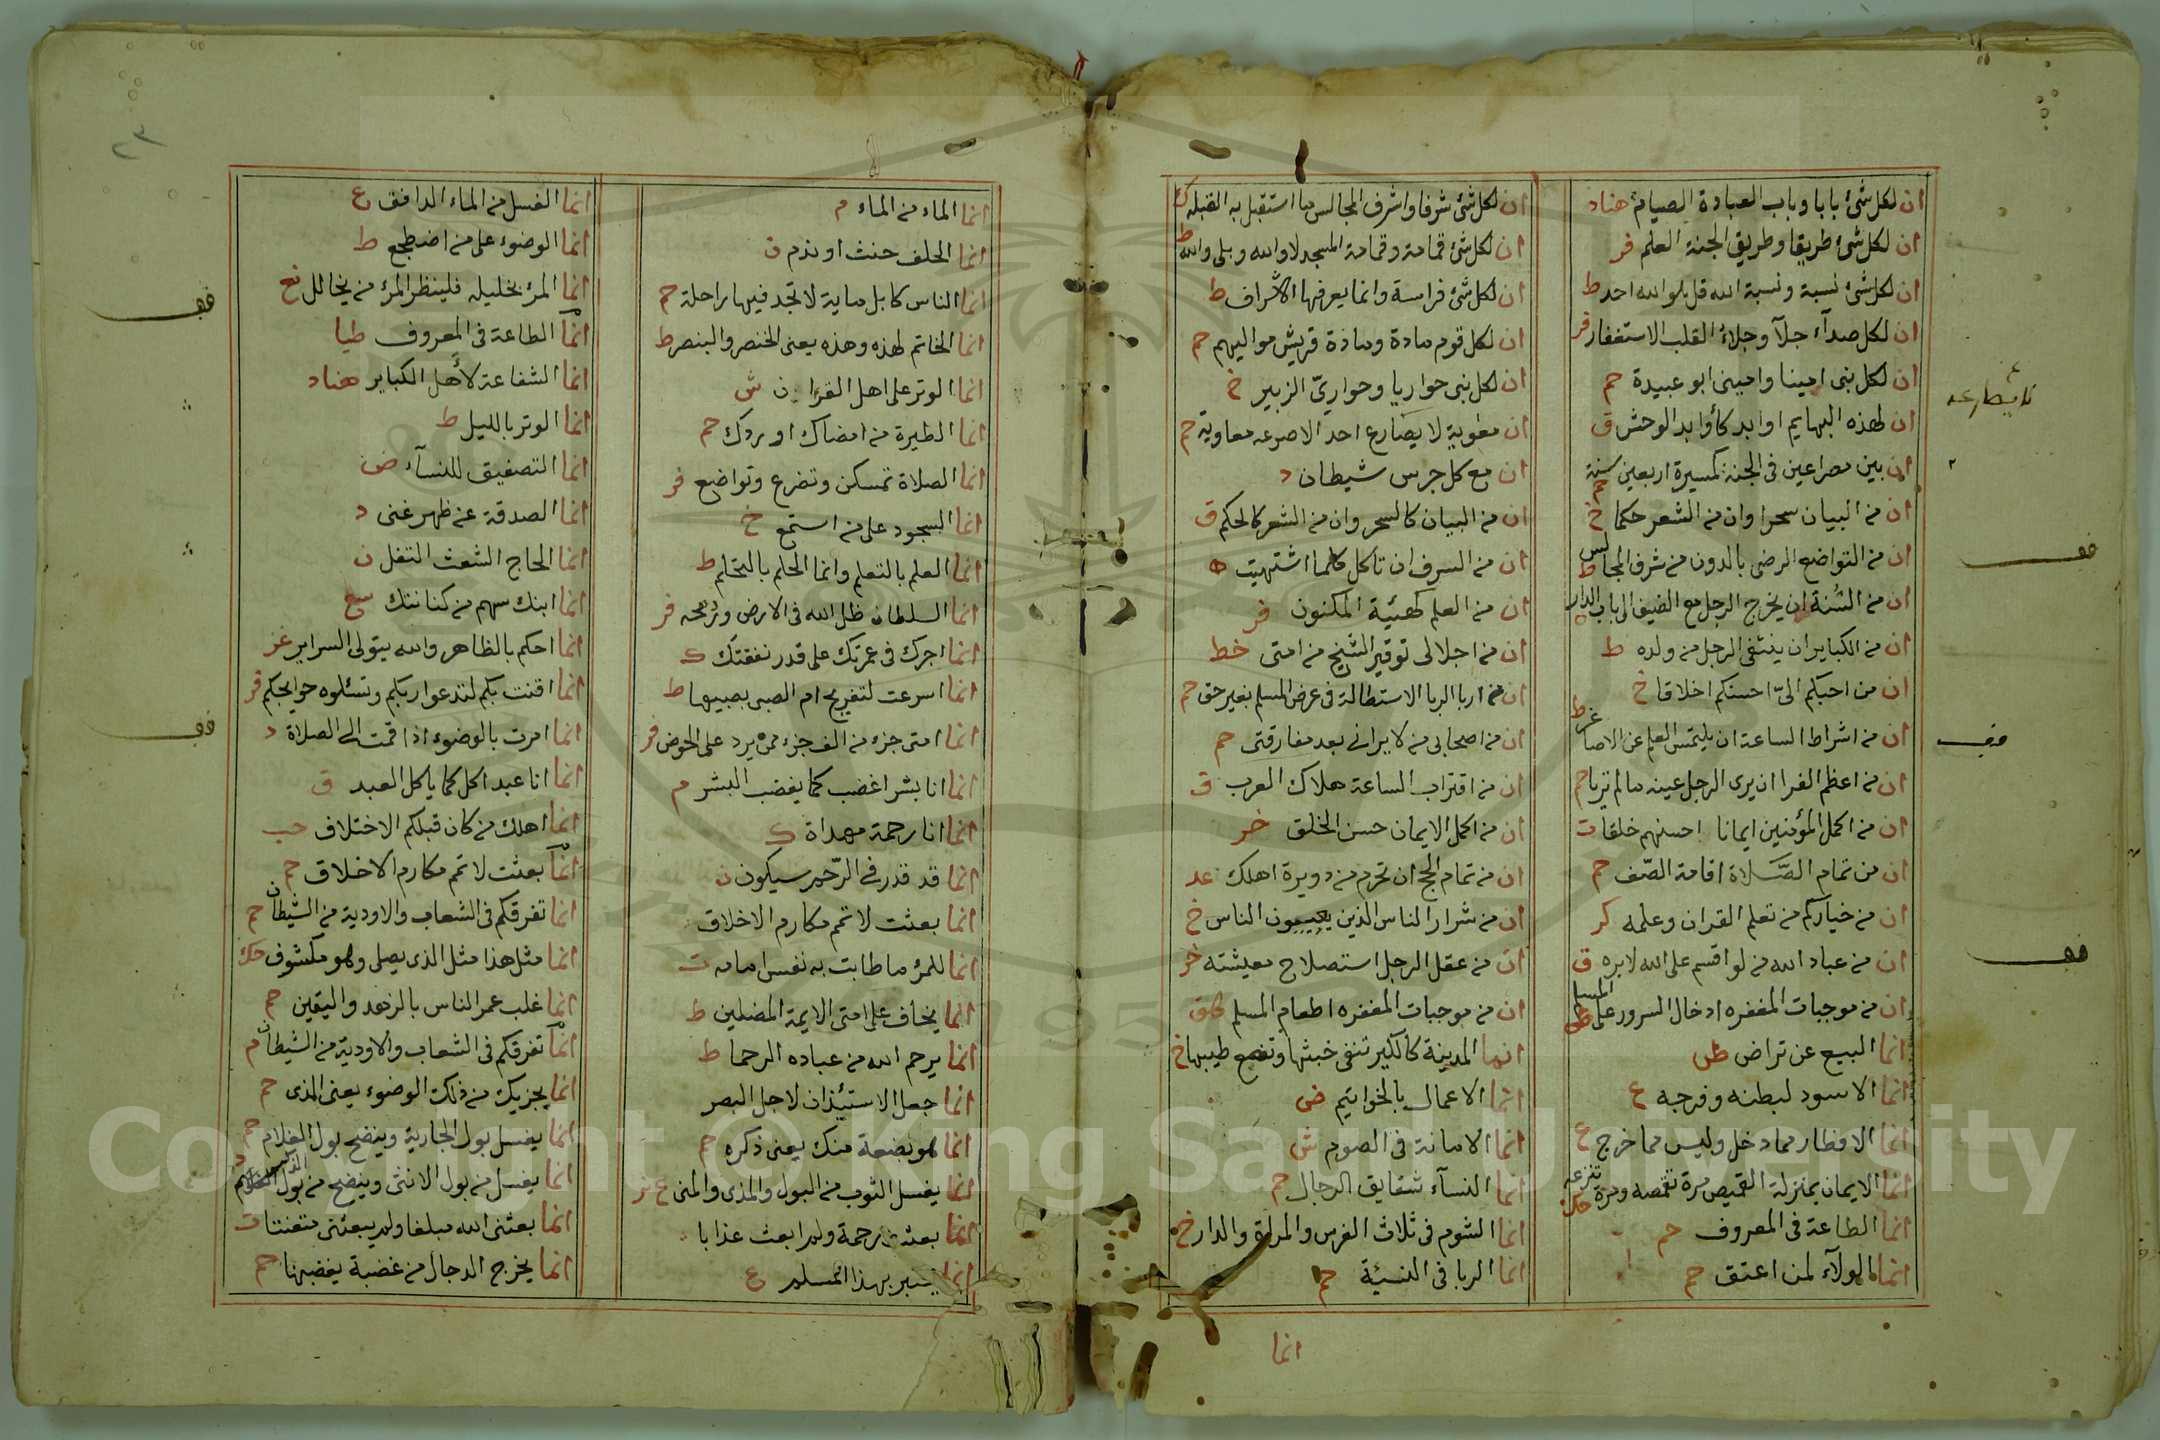 ان لكل شئ بابا وباب العبادة الصيام هناد
ان لكل شئ طريقا وطريق الجنة العلم فر
ان لكل شئ نسبة ونسبة الله قل هو الله احد ط
ان لكل صدآء جلآ وجلاء القلب الاستغفار فر
ان لكل نبى امينا وامينى ابو عبيدة حم
ان لهذه البهايم اوابد كأوابد الوحش ق
ان بين مصراعين فى الجنة كمسيرة اربعين سنة حم
ان من البيان سحرا وان من الشعر حكما خ
ان من التواضع الرضى بالدون من شرف المجالس ط
ان من السنة ان يخرج الرجل مع الضيف الى باب الدار ه
ان من الكباير ان ينتفى الرجل من ولده ط
ان من احبكم الىّ احسنكم اخلاقا خ
ان من اشراط الساعة ان يلتمس العلم عن الاصاغر ط
ان من اعظم الفرا ان يرى الرجل عينه ما لم تريا حم
ان من اكمل المؤمنين ايمانا احسنهم خلقا ت
ان من تمام الصّلاة اقامة الصّف حم
ان من خياركم من تعلم القران وعلمه كر
ان من عباد الله من لو اقسم على الله لابره ق
ان من موجبات المغفره ادخال السرور على المسلم ط
انما البيع عن تراض ط
انما الاسود لبطنه وفرجه ع
انما الافطار مما دخل وليس مما خرج ع
انما الايمان بمنزلة القميص مرة تقمصه ومرة تنزعه
انما الطاعة فى المعروف حم
انما الولآء لمن اعتق حم
ان لكل شئ شرفا واشرف المجالس ما استقبل به القبله ك
ان لكل شئ قمامة وقمامة المسجد لا والله وبلى والله ط
ان لكل شئ فراسة وانما يعرفها الاشراف ط
ان لكل قوم مادة ومادة قريش مواليهم حم
ان لكل نبى حواريا وحوارىّ الزبير خ
ان معوية لا يصارع احد الا صرعه معاوية حم
ان مع كل جرس شيطان د
ان من البيان كالسحر وان من الشعر كالحكم ق
ان من السرف ان تاكل كلما اشتهيت ه
ان من العلم كهئية المكنون فر
ان من اجلالى توقير الشيخ من امتى خط
ان من اربا الربا الاستطالة فى عرض المسلم بغير حق حم
ان من اصحابى من لا يرانى بعد مفارقتى حم
ان من اقتراب الساعة هلاك العرب ق
ان من اكمل الايمان حسن الخلق خر
ان من تمام الحج ان تحرم من دويرة اهلك عد
ان من شرار الناس الذين يعيبون الناس خ
ان من عقل الرجل استصلاح معيشته خر
ان من موجبات المغفره اطعام المسلم
انما المدينة كالكير تنفى خبثها وتنصع طيبها خ
انما الاعمال بالخواتيم ض
انما الامانة فى الصوم ش
انما النسآء شقايق الرجال حم
انما الشوم فى ثلاث الفرس والمراة والدار خ
انما الربا فى النسئة حم
انما
انما الماء من الماء م
انما الحلف حنث او ندم ق
انما الناس كابل ماية لا تجد فيها راحلة حم
انما الخاتم لهذه وهذه يعنى الخنصر والبنصر ط
انما الوتر على اهل القران ش
انما الطيرة من امضاك او ردك حم
انما الصلاة تمسكن وتضرع وتواضع فر
انما السجود على من استمع خ
انما العلم بالتعلم وانما الحلم بالتحلم ط
انما السلطان ظل الله فى الارض ورمحه فر
انما اجرك فى عمرتك على قدر نفقتك ك
انما اسرعت لتفريح ام الصبى بصبيها ط
انما امتى جزء من الف جزء ممن يرد على الحوض فر
انما انا بشر اغضب كما يغضب البشر م
انما انا رحمة مهداة ك
انما قد قدر فى الرّحم سيكون ن
انما بعثت لاتمم مكارم الاخلاق
انما للمرء ما طابت به نفس امامه ت
انما يخاف على امتى الايمة المضلين ط
انما يرحم الله من عباده الرحما ط
انما جعل الاستيذان لاجل البصر
انما هو بضعة منك يعنى ذكره حم
انما يغسل الثوب من البول والمذى والمنى ع
انما بعثت رحمة ولم ابعث عذابا
انما بهذا المسلم ع
انما الغسل من الماء الدافق ع
انما الوضوء على من اضطجع ط
انما المرء بخليله فلينظر المرء من يخالل نع
انما الطاعة فى المعروف طيا
انما الشفاعة لأهل الكباير هناد
انما الوتر بالليل ط
انما التصفيق للنسآء ض
انما الصدقة عن ظهر غنى د
انما الحاج الشعث التفل ن
انما ابنك سهم من كنانتك سع
انما احكم بالظاهر والله يتولى السراير عز
انما اقنت بكم لتدعوا ربكم وتسئلوه حوايجكم فر
انما امرت بالوضوء اذا قمت الى الصلاة د
انما انا عبد اكل كما ياكل العبد ق
انما اهلك من كان قبلكم الاختلاف حب
انما بعثت لاتمم مكارم الاخلاق حم
انما تفرقكم فى الشعاب والاودية من الشيطان حم
انما مثل هذا مثل الذى يصلى وهو مكشوف
انما غلب عمر الناس بالزهد واليقين حم
انما تفرقكم فى الشعاب والاودية من الشيطان م
انما يجزيك من ذلك الوضوء يعنى المذى حم
انما يغسل بول الجارية وينضح بول الغلام حم
انما يغسل من بول الانثى وينضح من بول الذكر
انما بعثنى الله مبلغا ولم يبعثنى متعنتا ت
انما يخرج الدجال من غضبة يغضبها حم
Copyright © King Saud University